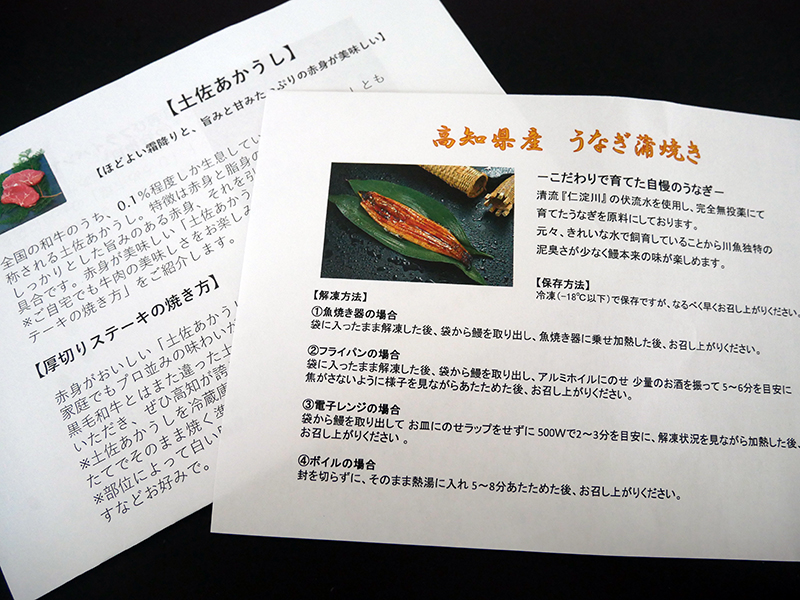 【土佐あかうし】
【ほどよい霜降りと、旨みと甘みたっぷりの赤身が美味しい】
全国の和牛のうち、0.1%程度しか生息してい
称される土佐あかうし。特徴は赤身と脂身の
しっかりとした旨みのある赤身、それを引
具合です。赤身が美味しい「土佐あかうし
※ご自宅でも牛肉の美味しさをお楽しみ
テーキの焼き方」をご紹介します。
【厚切りステーキの焼き方】
赤身がおいしい「土佐あかうし
家庭でもプロ並みの味わいが
黒毛和牛とはまた違った土
いただき、ぜひ高知が誇
※土佐あかうしを冷蔵庫
たてでそのまま焼く準
※部位によって白い
すなどお好みで。
高知県産 うなぎ蒲焼き
ーこだわりで育てた自慢のうなぎー
清流『仁淀川』の伏流水を使用し、完全無投薬にて
育てたうなぎを原料にしております。
元々、きれいな水で飼育していることから川魚独特の
泥臭さが少なく鰻本来の味が楽しめます。
【保存方法】
冷凍(-18℃以下)で保存ですが、なるべく早くお召し上がりください。
【解凍方法】
①魚焼き器の場合
袋に入ったまま解凍した後、袋から鰻を取り出し、魚焼き器に乗せ加熱した後、お召し上がりください。
②フライパンの場合
袋に入ったまま解凍した後、袋から鰻を取り出し、アルミホイルにのせ 少量のお酒を振って 5~6分を目安に
焦がさないように様子を見ながらあたためた後、お召し上がりください。
③電子レンジの場合
袋から鰻を取り出して お皿にのせラップをせずに 500Wで2~3分を目安に、解凍状況を見ながら加熱した後、
お召し上がりください 。
④ボイルの場合
封を切らずに、そのまま熱湯に入れ 5~8分あたためた後、お召し上がりください。